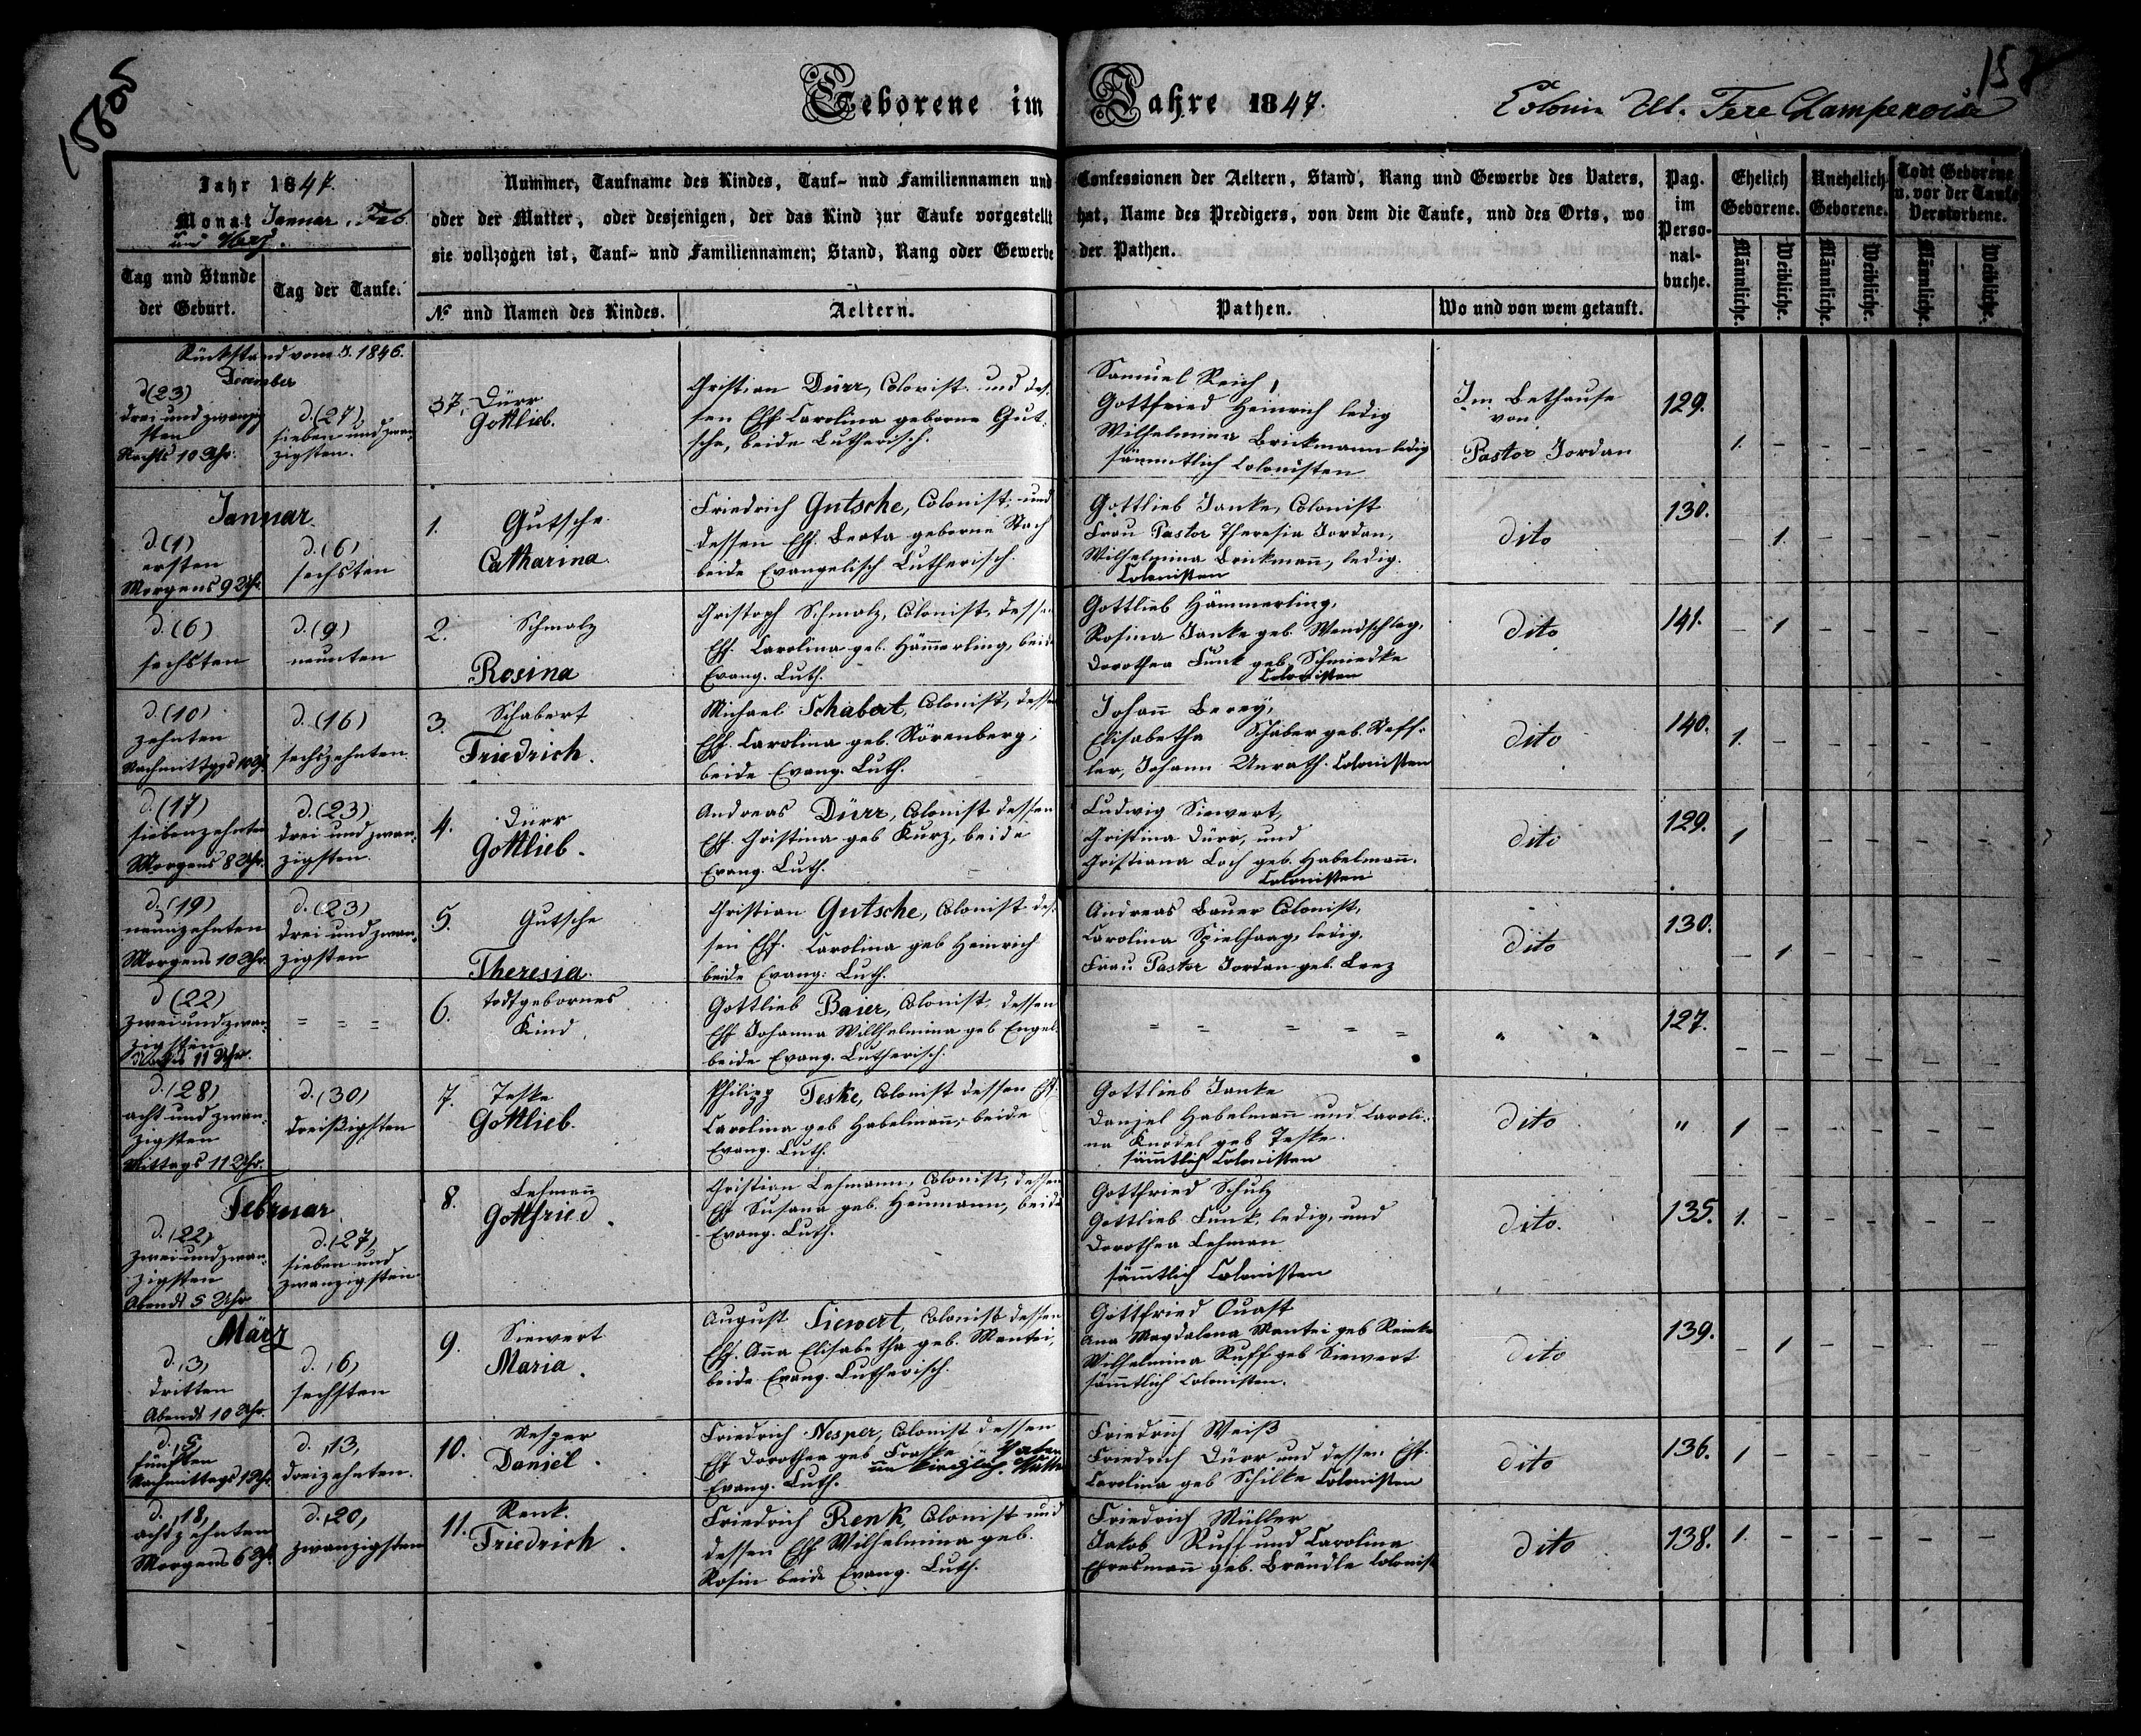 Geborene im Jahre 1847.
Colonie Alt-Fere Champenoise
Jahr 1847.
Monat Januar, Feb.
und März.
Tag und Stunde
der Geburt.
Tag der Taufe.
Nummer, Taufname des Kindes, Tauf- und Familiennamen und Confessionen der Aeltern, Stand, Rang und Gewerbe des Vaters,
oder der Mutter, oder desjenigen, der das Kind zur Taufe vorgestellt hat, Name des Predigers, von dem die Taufe, und des Orts, wo
sie vollzogen ist, Tauf- und Familiennamen; Stand, Rang oder Gewerbe der Pathen.
№ und Namen des Kindes.
Aeltern.
Pathen.
Wo und von wem getauft.
Pag.
im
Perso-
nal-
buche.
Ehelich
Geborene.
Unehelich
Geborene.
Todt Geborene
u. vor der Taufe
Verstorbene.
Männliche.
Weibliche.
Männliche.
Weibliche.
Männliche.
Weibliche.
Rückstand vom J. 1846.
December
d (23)
drei und zwanzig
sten
Nachts 10 Uhr.
d. (27)
sieben und zwan-
zigsten.
37. Dürr
Gottlieb.
Christian Dürr, Colonist und des-
sen Ehf. Carolina geborne Gut-
sche, beide Lutherisch.
Samuel Reich,
Gottfried Heinrich ledig
Wilhelmina Brickmann ledig
sämmtlich Colonisten
Im Bethause
von
Pastor Jordan
129.
1. - - - - -
Januar.
d. (1)
ersten
Morgens 9 Uhr.
d. (6)
sechsten
1. Gutsche
Catharina.
Friedrich Gutsche, Colonist, und
dessen Ehf. Beata geborne Stach
beide Evangelisch Lutherisch.
Gottlieb Janke, Colonist
Frau Pastor Theresia Jordan,
Wilhelmina Brickmann, ledig.
Colonisten
dito
130.
- 1. - - - -
d. (6)
sechsten
d. (9)
neunten
2. Schmalz
Rosina
Christoph Schmalz, Colonist, dessen
Ehf. Carolina geb. Hämmerling, beide
Evang. Luth.
Gottlieb Hämmerling,
Rosina Janke geb. Wendschlag,
Dorothea Funk geb. Schmiedke
Colonisten
dito
141.
- 1 - - - -
d. (10)
zehnten
d. (16)
sechszehnten.
3. Schabert
Friedrich.
Michael Schabert, Colonist, dessen
Ehf. Carolina geb. Nörenberg,
beide Evang. Luth.
Johann
Elisabetha Schäber geb. Steff-
ler, Johann Unrath. Colonisten
dito
140.
1. - - - - -
d. (17)
siebenzehnten
Morgens 8 Uhr.
d. (23)
drei und zwan-
zigsten.
4. Dürr
Gottlieb.
Andreas Dürr, Colonist dessen
Ehf. Christina geb Kurz, beide
Evang. Luth.
Ludwig Siewert,
Christina Dürr, und
Christiana Loch geb. Habelmann.
Colonisten
dito
129.
1 - - - -
d. (19)
neunzehnten
Morgens 10 Uhr.
d. (23)
drei und zwan-
zigsten
5. Gutsche
Theresia.
Christian Gutsche, Colonist des-
sen Ehf. Carolina geb Heinrich
beide Evang. Luth.
Andreas Bauer Colonist,
Carolina Spielhaag, ledig,
Frau Pastor Jordan geb. Lenz
dito
130.
- 1 - - - -
d (22)
zwei und zwan-
zigsten
Nachts 11 Uhr.
= = =
6. todtgebornes
Kind
Gottlieb Baier, Colonist, dessen
Ehf Johanna Willhelmina geb Engel
beide Evang. Lutherisch.
= = = = =
127.
- - - - - -
d. (28)
acht und zwan-
zigsten
Mittags 11 Uhr.
d. (30)
dreißigsten
7. Teske
Gottlieb.
Philipp Teske, Colonist dessen Ehf.
Carolina geb Habelmann, beide
Evang. Luth.
Gottlieb Janke
Daniel Habelmann und Caroli-
na Knodel geb Teske
sämmtlich Colonisten
dito
"
1 - - - - -
Februar
d. (22)
zwei und zwan-
zigsten
Abends 5 Uhr
d. (27)
sieben und
zwanzigsten
8. Lehmann
Gottfried.
Christian Lehmann, Colonist, dessen
Ehf Susana geb. Heumann, beide
Evang. Luth.
Gottfried Schulz
Gottlieb Funk, ledig, und
Dorothea Lehman
sämmtlich Colonisten
dito.
135.
1. - - - - -
März
d. (3)
dritten
Abends 10 Uhr.
d. (6)
sechsten
9. Siewert
Maria.
August Siewert, Colonist dessen
Ehf. Anna Elisabetha geb. Mantei,
beide Evang. Lutherisch.
Gottfried Quast
Ana Magdalena Mantei geb Reinke
Wilhelmina Ruff geb Siewert
sämmtlich Colonisten.
dito
139.
- 1 - - - -
d. 5
fünften
Nachmittags 1 Uhr.
d. 13,
dreizehnten.
10. Nesper
Daniel.
Friedrich Nesper, Colonist dessen
Ehf Dorothea geb Fraske
Evang. Luth.
Friedrich Weiß
Friedrich Dürr und dessen Ehf.
Carolina geb Schilke Colonisten
dito
136.
1 - - - - -
d. 18,
achtzehnten
Morgens 6 Uhr
d. 20,
zwanzigsten
11. Renk.
Friedrich.
Friedrich Renk, Colonist und
dessen Ehf Wilhelmina geb.
Rosin beide Evang. Luth.
Friedrich Müller
Jakob Ruff und Carolina
Ehresmann geb. Brändle Colonist
dito
138.
1. - - - - -